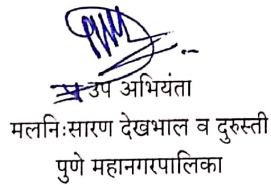 प्र उप अभियंता
मलनि:सारण देखभाल व दुरुस्ती
पुणे महानगरपालिका